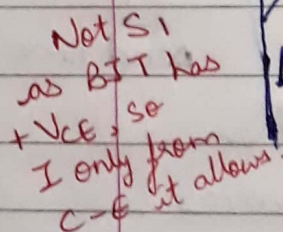 Not S1
as BJT has
+ VCE, so
I only from
C-E it allows.